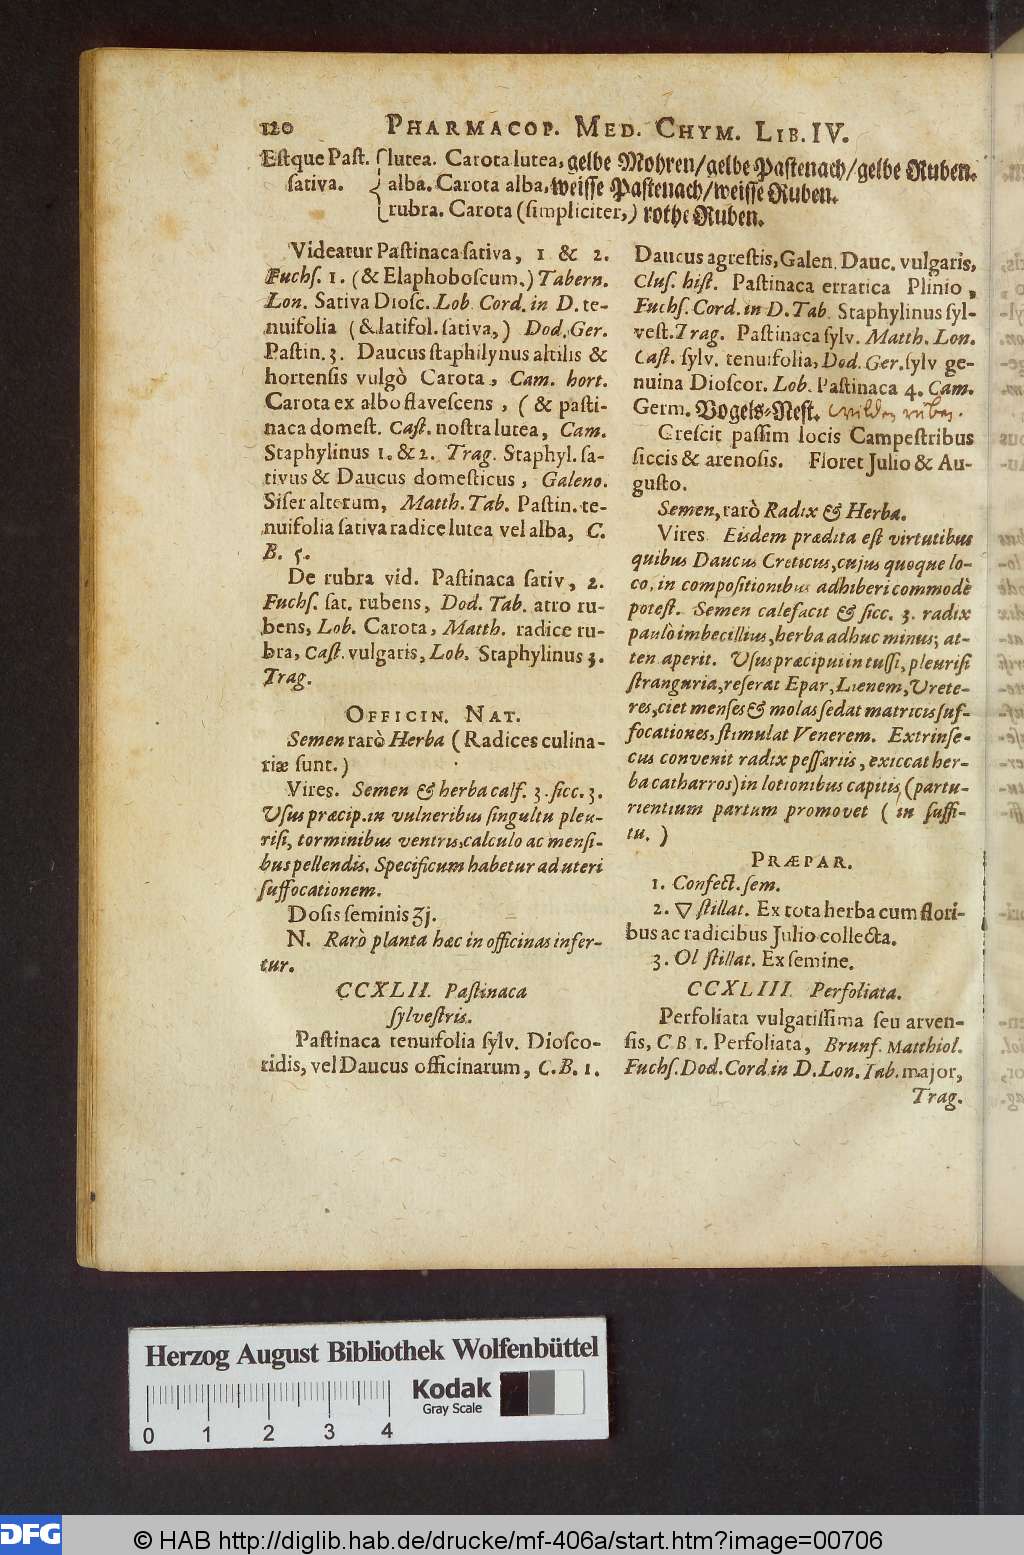 120 PHARMACOP. MED. CHYM. LIB. IV.
Estque Past. sativa. { lutea. Carota lutea, gelbe Mohren/gelbe Pastenach/gelbe Ruben.
alba. Carota alba, weisse Pastenach/weisse Ruben.
rubra. Carota (simpliciter,) rothe Ruben.
Videatur Pastinaca sativa, 1 & 2.
Fuchs. 1. (& Elaphoboscum.) Tabern.
Lon. Sativa Diosc. Lob. Cord. in D. te-
nuifolia (& latifol. sativa,) Dod. Ger.
Pastin. 3. Daucus staphilynus altilis &
hortensis vulgò Carota, Cam. hort.
Carota ex albo flavescens, (& pasti-
naca domest. Cast. nostra lutea, Cam.
Staphylinus 1. & 2. Trag. Staphyl. sa-
tivus & Daucus domesticus, Galeno.
Siser alterum, Matth. Tab. Pastin. te-
nuifolia sativa radice lutea vel alba, C.
B. 5.
De rubra vid. Pastinaca sativ, 2.
Fuchs. sat. rubens, Dod. Tab. atro ru-
bens, Lob. Carota, Matth. radice ru-
bra, Cast. vulgaris, Lob. Staphylinus 3.
Trag.
OFFICIN. NAT.
Semen rarò Herba (Radices culina-
riæ sunt.)
Vires. Semen & herba calf. 3. sicc. 3.
Usus præcip. in vulneribus singultu pleu-
risi, torminibus ventris, calculo ac mensi-
bus pellendis. Specificum habetur ad uteri
suffocationem.
Dosis seminis ʒj.
N. Rarò planta hæc in officinas infer-
tur.
CCXLII. Pastinaca
sylvestris.
Pastinaca tenuifolia sylv. Diosco-
ridis, vel Daucus officinarum, C. B. 1.
Daucus agrestis, Galen. Dauc. vulgaris,
Clus. hist. Pastinaca erratica Plinio,
Fuchs. Cord. in D. Tab. Staphylinus syl-
vest. Trag. Pastinaca sylv. Matth. Lon.
Cast. sylv. tenuifolia, Dod. Ger. sylv ge-
nuina Dioscor. Lob. Pastinaca 4. Cam.
Germ. Vogels-Nest. wilden ruben.
Crescit passim locis Campestribus
siccis & arenosis. Floret Julio & Au-
gusto.
Semen, rarò Radix & Herba.
Vires. Eisdem prædita est virtutibus
quibus Daucus Creticus, cujus quoque lo-
co, in compositionibus adhiberi commodè
potest. Semen calefacit & sicc. 3. radix
paulò imbecillius, herba adhuc minus; at-
ten aperit. Usus præcipui in tussi, pleurisi
stranguria, reserat Epar, Lienem, Urete-
res, ciet menses & molas sedat matricis suf-
focationes, stimulat Venerem. Extrinse-
cus convenit radix pessariis, exiccat her-
ba catharros) in lotionibus capitis, (partu-
rientium partum promovet (in suffi-
tu.)
PRÆPAR.
1. Confect. sem.
2. ▽ stillat. Ex tota herba cum flori-
bus ac radicibus Julio collecta.
3. Ol stillat. Ex semine.
CCXLIII. Perfoliata.
Perfoliata vulgatissima seu arven-
sis, C. B. 1. Perfoliata, Brunf. Matthiol.
Fuchs. Dod. Cord. in D. Lon. Tab. major,
Trag.
Herzog August Bibliothek Wolfenbüttel
Kodak
Gray Scale
0 1 2 3 4
DFG
© HAB http://diglib.hab.de/drucke/mf-406a/start.htm?image=00706